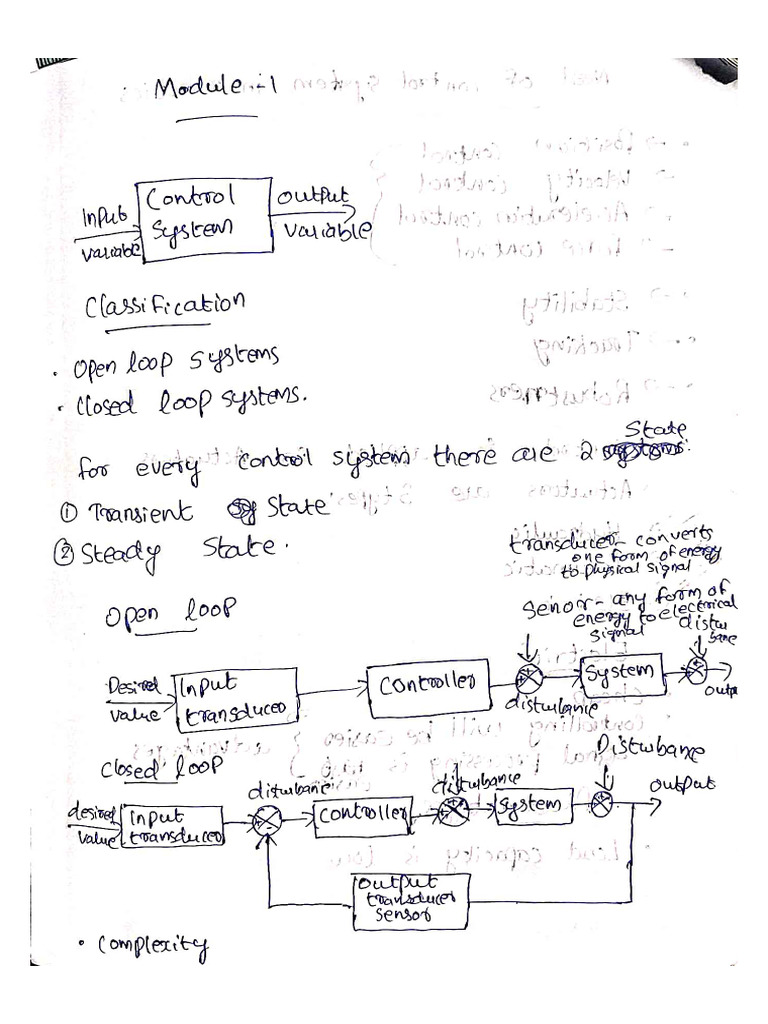 Module-1
Control
System
Input
variable
output
variable
Classification
• Open loop systems
• Closed loop systems.
for every control system there are 2 State
① Transient State
② Steady State.
transducer - converts
one form of energy
to physical signal
Open loop
Senor - any form of
energy to electrical
signal
distu
bane
Desired
value
Input
transducer
Controller
disturbance
System
outp
Closed loop
disturbane
disturbance
Disturbane
output
desired
value
Input
transducer
Controller
System
Output
transducer
Sensor
• Complexity